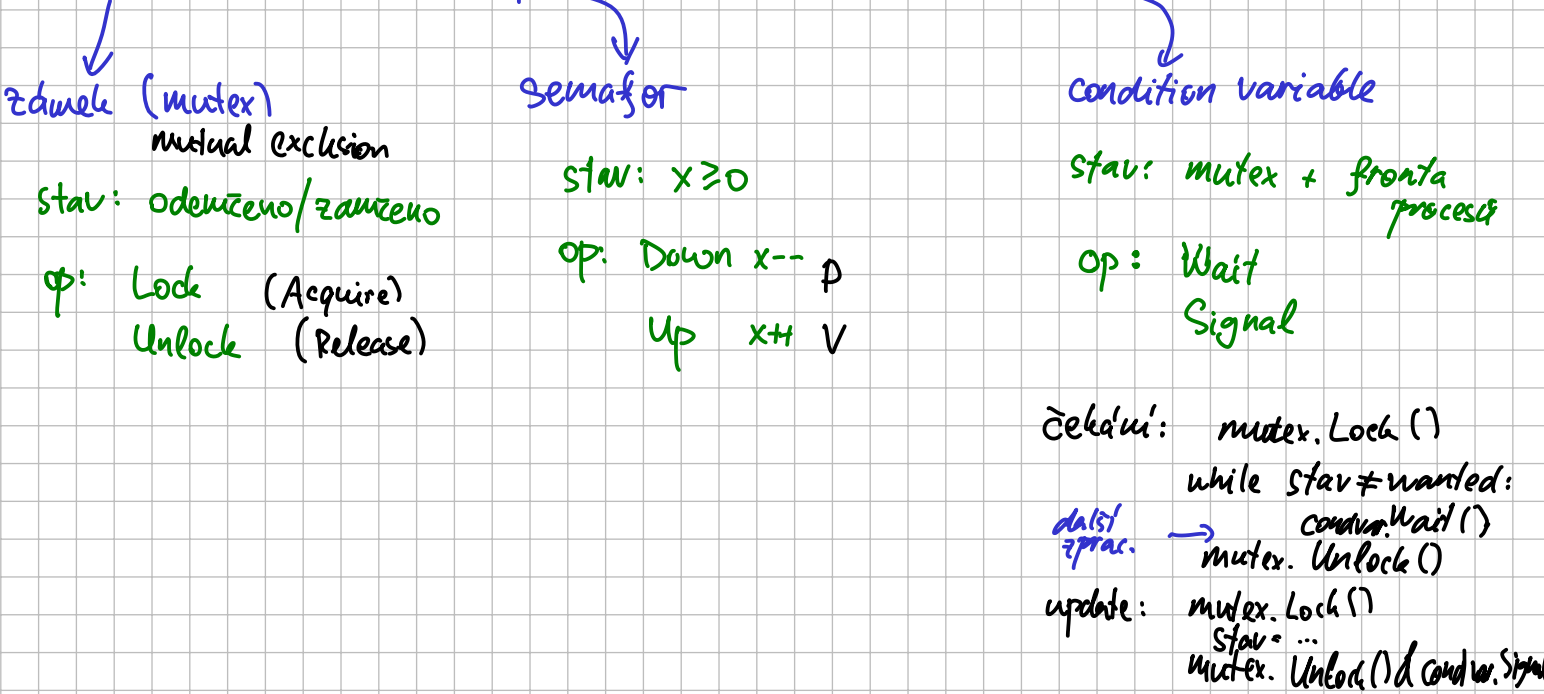 zámek (mutex)
mutual exclusion
stav: odemčeno/zamčeno
op: Lock (Acquire)
Unlock (Release)
semafor
stav: x ≥ 0
op: Down x-- P
Up x++ V
condition variable
stav: mutex + fronta
procesů
op: Wait
Signal
čekání: mutex.Lock()
while stav ≠ wanted:
condvar.Wait()
další
zprac. →
mutex.Unlock()
update: mutex.Lock()
stav = ...
mutex.Unlock() & condvar.Signa